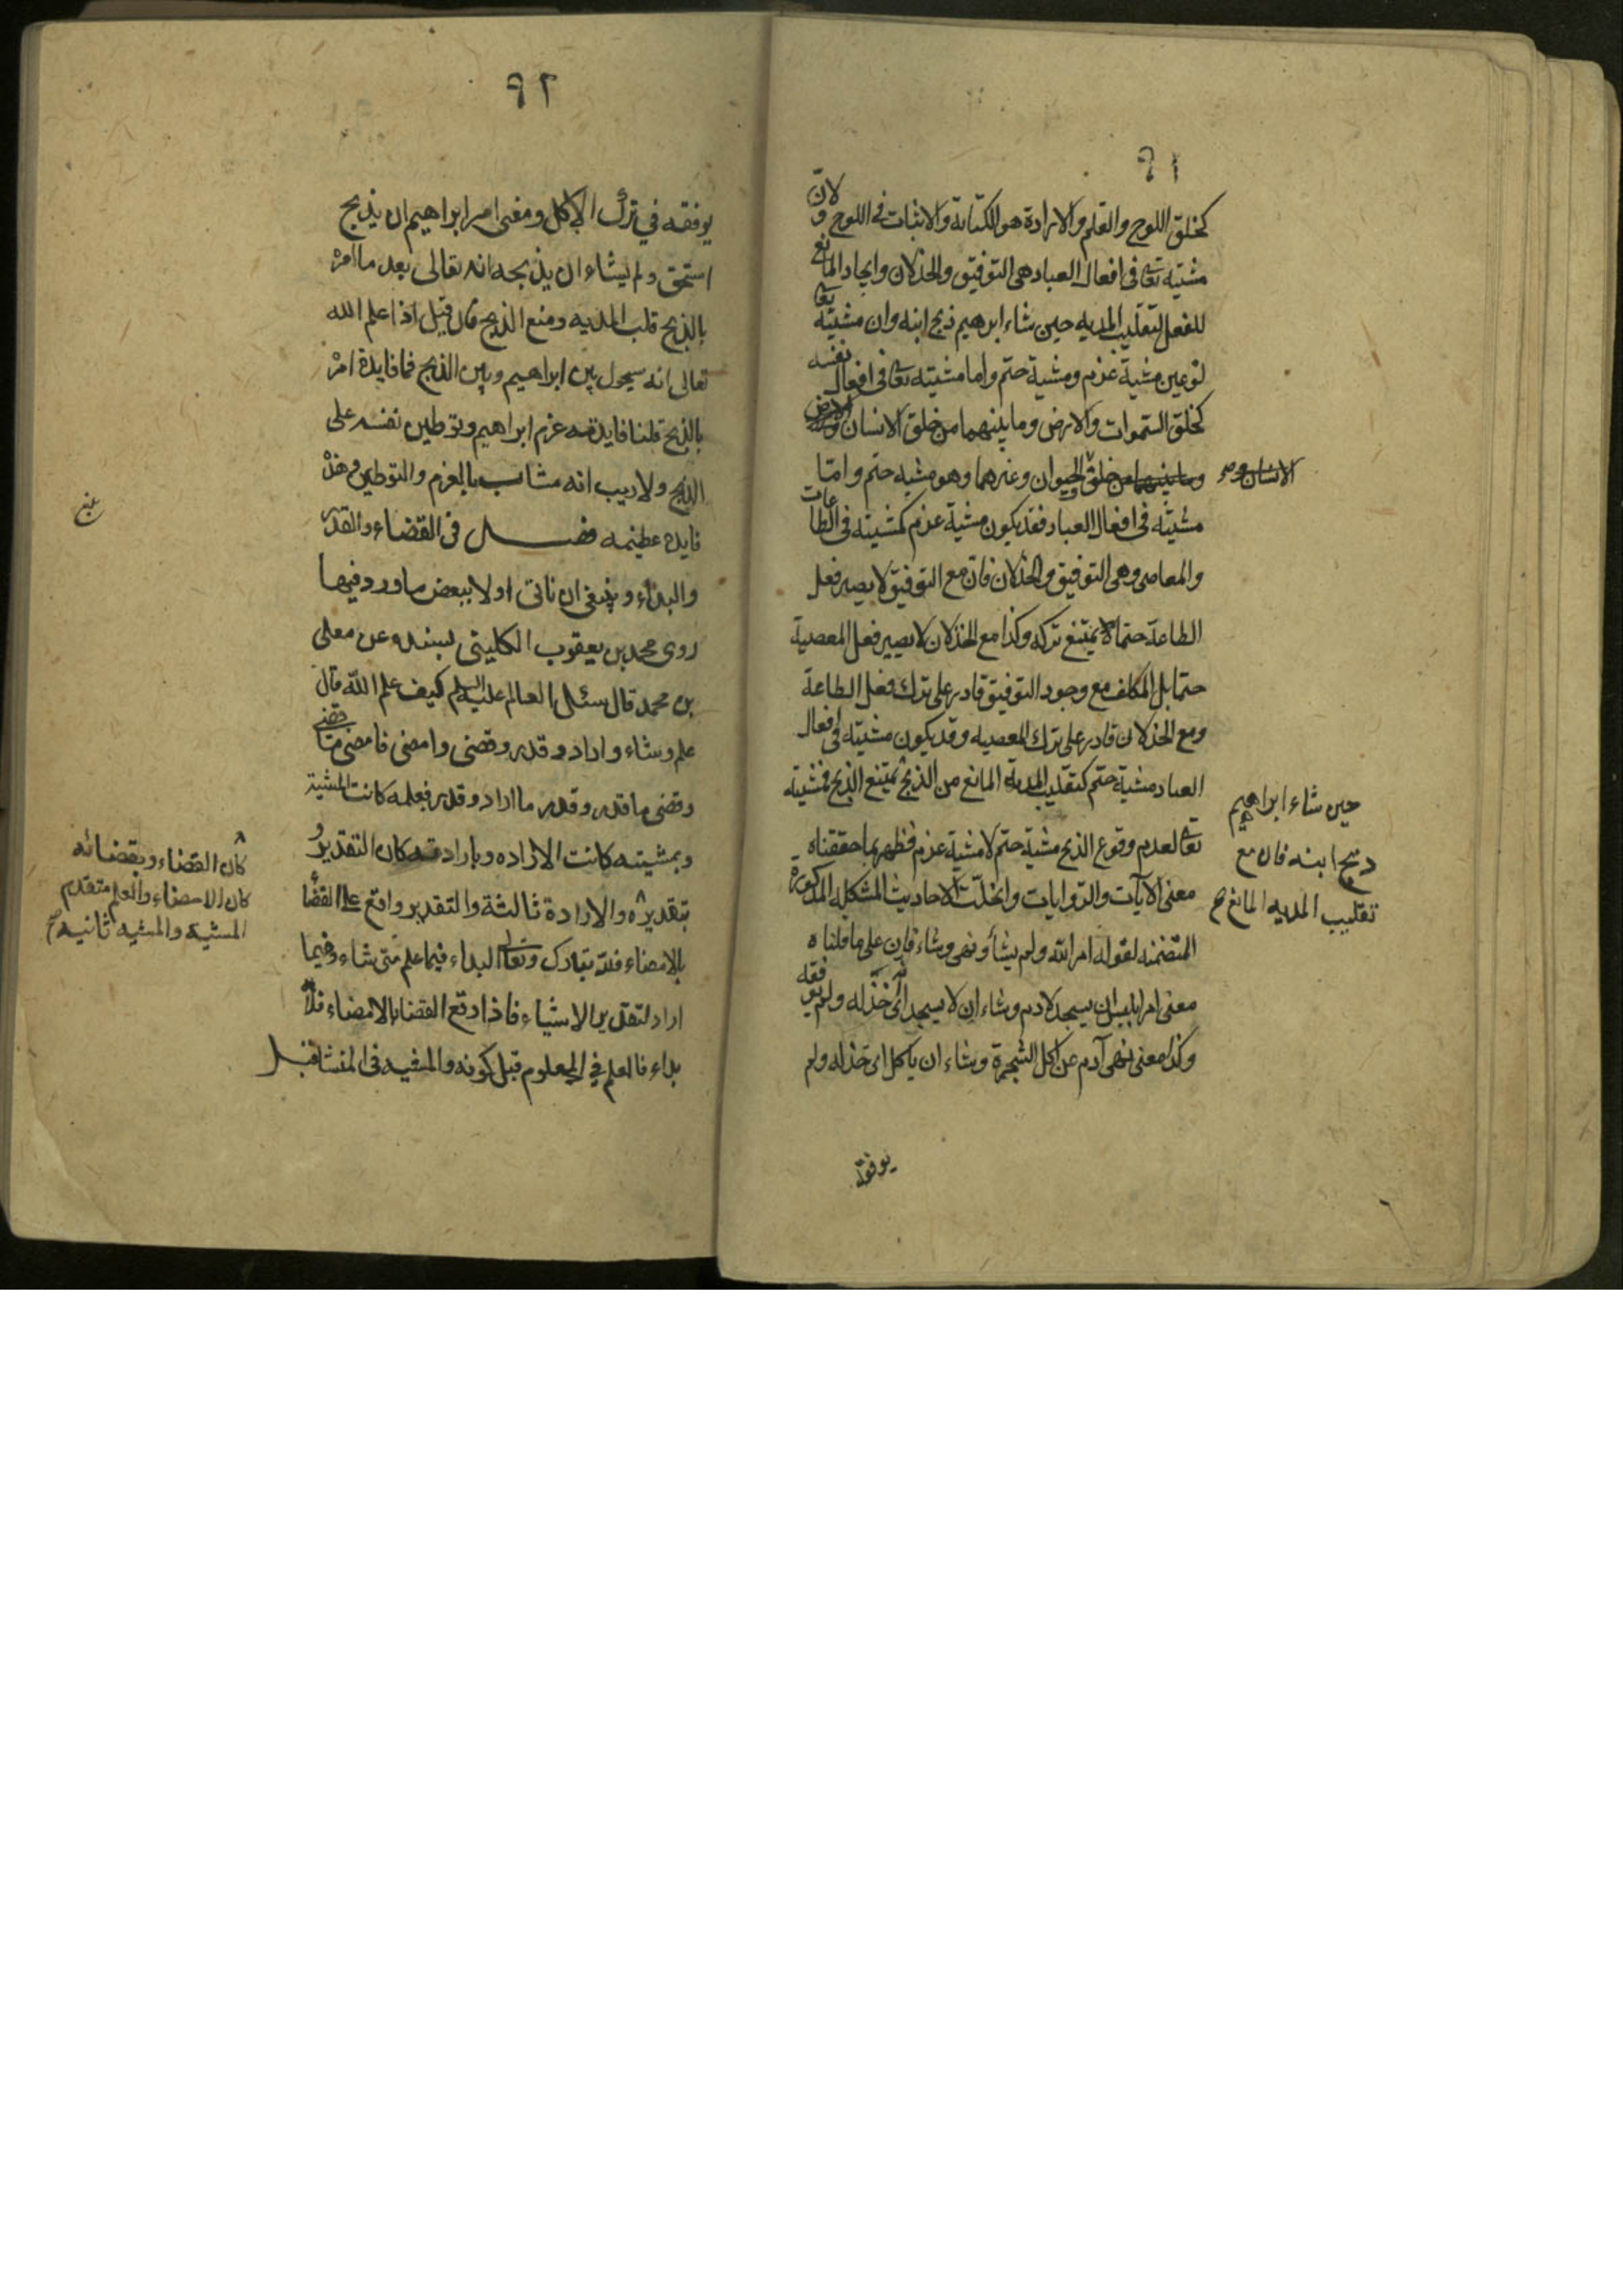 ٩١
كخلق اللوح والقلم والارادة هو الكتابة والاثبات في اللوح و لانّ
مشيته تعا فى افعال العباد هى التوفيق والخذلان وايجاد المانع
للفعل كتقليب المديه حين شاء ابرهيم ذبح ابنه وان مشيته تعا
نوعين مشية عزم ومشية حتم واما مشيته تعا فى افعال نفسه
كخلق السموات والارض وما بينهما من خلق الانسان
وما بينهما من خلق الحيوان وغيرهما وهو مشيه حتم وامّا
مشيته فى افعال العباد فقد يكون مشية عزم كمشيته فى الطاعات
والمعاصى وهى التوفيق والخذلان فان مع التوفيق لا يصير فعل
الطاعة حتما لا يمتنع تركه وكذا مع الخذلان لا يصير فعل المعصية
حتما بل المكلف مع وجود التوفيق قادر على ترك فعل الطاعة
ومع الخذلان قادر على ترك المعصيه وقد يكون مشيته فى افعال
العباد مشية حتم كتقليب المدية المانع من الذبح يمتنع الذبح فمشيته
تعا لعدم وقوع الذبح مشية حتم لا مشية عزم فظهر بما حققناه
معنى الآيات والروايات وانحلت الاحاديث المشكله المذكورة
المتضمنه لقوله امر الله ولم يشأ ونهى وشاء فان على ما قلناه
معنى امر ابليس ان يسجد لادم وشاء ان لا يسجد اى خذله ولم يوفقه
وكذا معنى نهى آدم عن اكل الشجرة وشاء ان ياكل اى خذله ولم
يوفقه
حين شاء ابراهيم
ذبح ابنه فان مع
تقليب المديه المانع
٩٢
يوفقه في ترك الاكل ومعنى امر ابراهيم ان يذبح
اسحق ولم يشاء ان يذبحه انه تعالى بعد ما امره
بالذبح قلب المديه ومنع الذبح فان قيل اذا علم الله
تعالى انه سيحول بين ابراهيم وبين الذبح فما فايدة امره
بالذبح قلنا فايدته عزم ابراهيم وتوطين نفسه على
الذبح ولا ريب انه مثاب بالعزم والتوطين وهذه
فايده عظيمه فصل فى القضاء والقدر
والبداء وينبغى ان ناتى اولا ببعض ما ورد فيها
روى محمد بن يعقوب الكليني بسنده عن معلى
بن محمد قال سئل العالم عليه السلم كيف علم الله قال
علم وشاء واراد وقدر وقضى وامضى فامضى ما قضى
وقضى ما قدر وقدر ما اراد وقدر فبعلمه كانت المشية
وبمشيته كانت الاراده وبارادته كان التقدير و
بتقديره والارادة ثالثة والتقدير واقع على القضا
بالامضاء فلله تبارك وتعالى البداء فيما علم متى شاء وفيما
اراد لتقدير الاشياء فاذا وقع القضا بالامضاء فلا
بداء فالعلم في المعلوم قبل كونه والمشيه فى المنشا قبل
كان القضاء وبقضائه
كان الامضاء والعلم متقدم
المشية والمشيه ثانيه